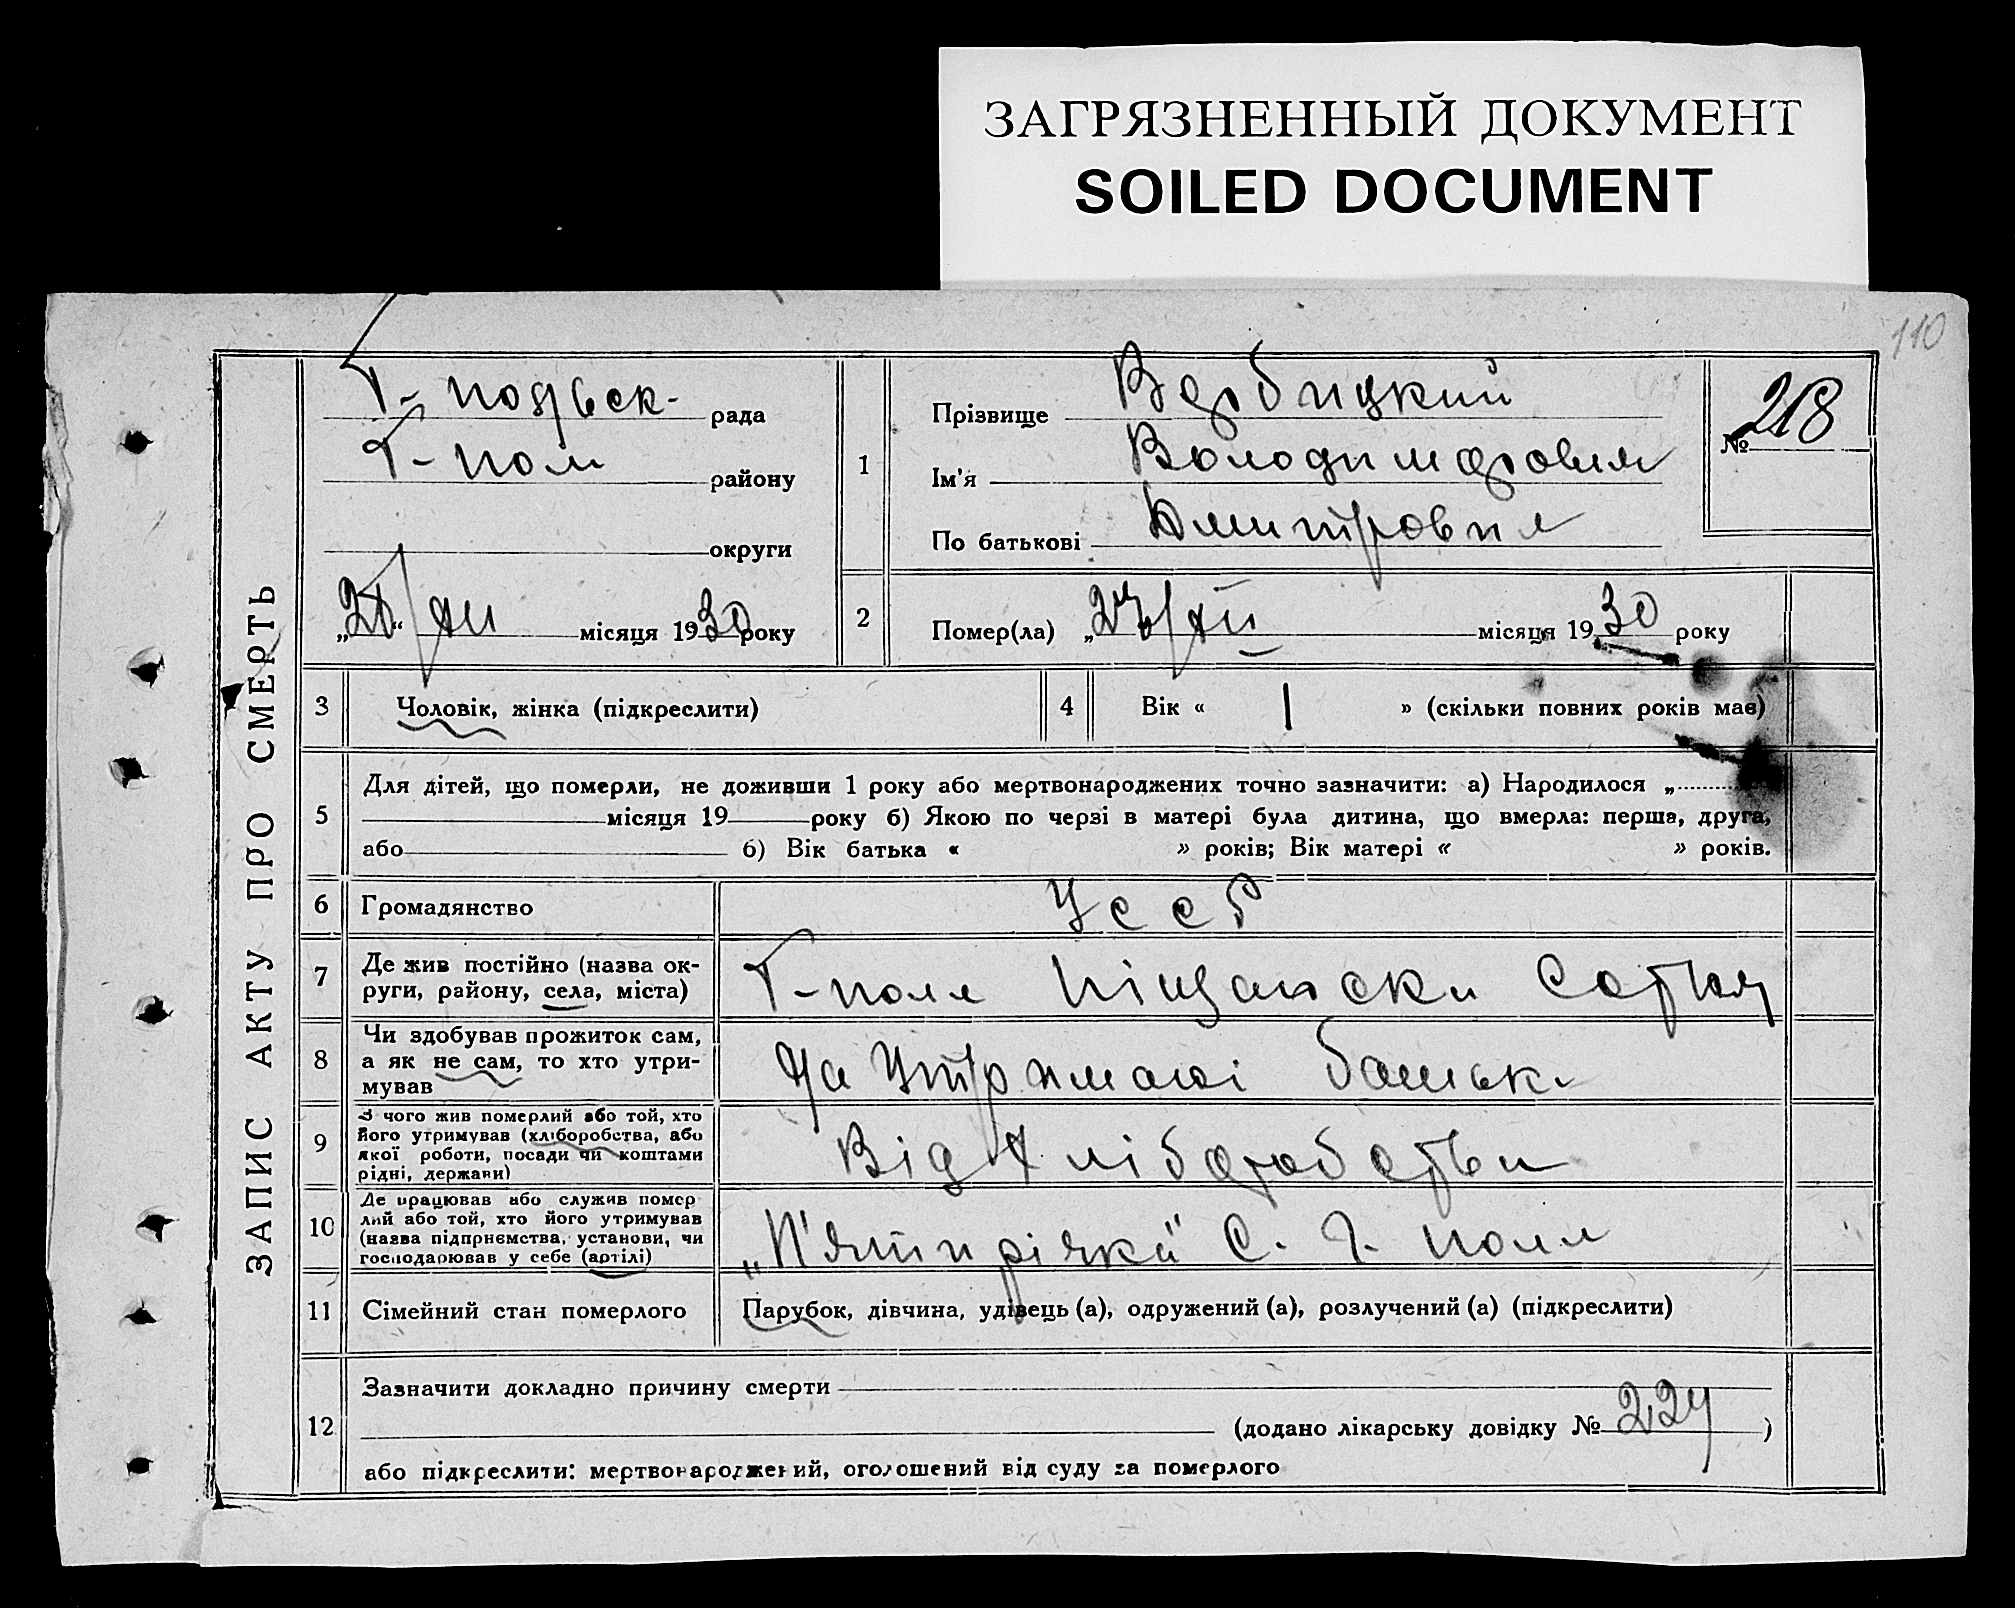 ЗАГРЯЗНЕННЫЙ ДОКУМЕНТ
SOILED DOCUMENT
110
ЗАПИС АКТУ ПРО СМЕРТЬ
рада
Г-пол району
округи
місяця 1930 року
1
Прізвище Вербицкий
Ім'я
По батькові Дмитрович
№ 218
2 Помер(ла) „23/XII місяця 1930 року
3 Чоловік, жінка (підкреслити)
4 Вік « 1 » (скільки повних років має)
5 Для дітей, що померли, не доживши 1 року або мертвонароджених точно зазначити: а) Народилося „
місяця 19 року б) Якою по черзі в матері була дитина, що вмерла: перша, друга,
або б) Вік батька « » років; Вік матері « » років.
6 Громадянство УССР
7 Де жив постійно (назва ок-
руги, району, села, міста)
Г-поля Піщански Сотня
8 Чи здобував прожиток сам,
а як не сам, то хто утри-
мував
На утримані батьк.
9 З чого жив померлий або той, хто
його утримував (хліборобства, або
якої роботи, посади чи коштами
рідні, держави)
Від Хліборобства
10 Де працював або служив помер
лий або той, хто його утримував
(назва підприємства, установи, чи
господарював у себе (артілі)
„П'ятирічка" С. Г. поля
11 Сімейний стан померлого Парубок, дівчина, удівець (а), одружений (а), розлучений (а) (підкреслити)
12 Зазначити докладно причину смерти
(додано лікарську довідку № 224 )
або підкреслити: мертвонароджений, оголошений від суду за померлого